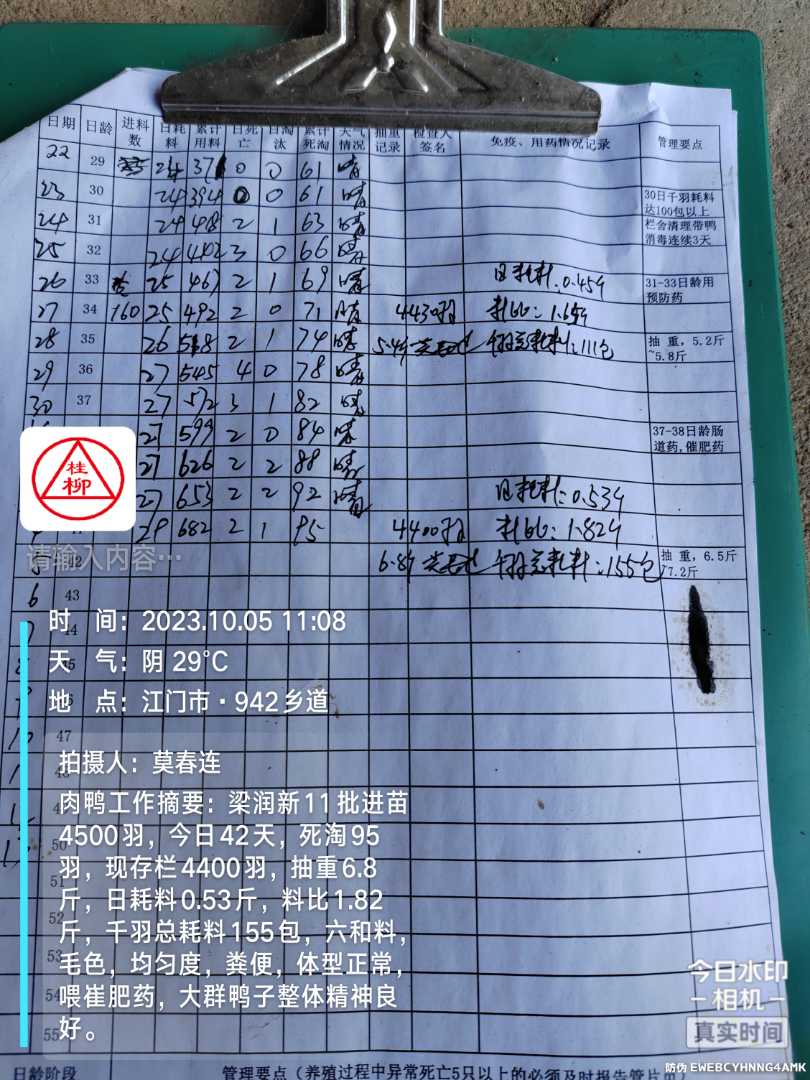 日期 日龄 进料数 日耗料 累计用料 日死亡 日淘汰 累计死淘 天气情况 抽重记录 检查人签名 免疫、用药情况记录 管理要点
22 29 24 37 0 0 61 晴
23 30 24 394 0 0 61 晴 30日千羽耗料达100包以上
24 31 24 418 2 1 63 晴 栏舍清理带鸭消毒连续3天
25 32 24 442 3 0 66 晴
26 33 25 467 2 1 69 晴 日耗料:0.45斤 31-33日龄用预防药
27 34 160 25 492 2 0 71 晴 4430羽 料比:1.65斤
28 35 26 518 2 1 74 晴 5.4斤 千羽总耗料:111包 抽重,5.2斤~5.8斤
29 36 27 545 4 0 78 晴
30 37 27 572 3 1 82 晴
27 599 2 0 84 晴 37-38日龄肠道药,催肥药
27 626 2 2 88 晴
27 653 2 2 92 晴 日耗料:0.53斤
29 682 2 1 95 4400羽 料比:1.82斤
6.8斤 千羽总耗料:155包 抽重,6.5斤~7.2斤
6 43
47
50
51
52
53
54
55
日龄阶段 管理要点(养殖过程中异常死亡5只以上的必须及时报告管片
桂柳
请输入内容…
时 间:2023.10.05 11:08
天 气:阴 29℃
地 点:江门市·942乡道
拍摄人:莫春连
肉鸭工作摘要:梁润新11批进苗
4500羽,今日42天,死淘95
羽,现存栏4400羽,抽重6.8
斤,日耗料0.53斤,料比1.82
斤,千羽总耗料155包,六和料,
毛色,均匀度,粪便,体型正常,
喂崔肥药,大群鸭子整体精神良
好。
今日水印
相机
真实时间
防伪 EWEBCYHNNG4AMK